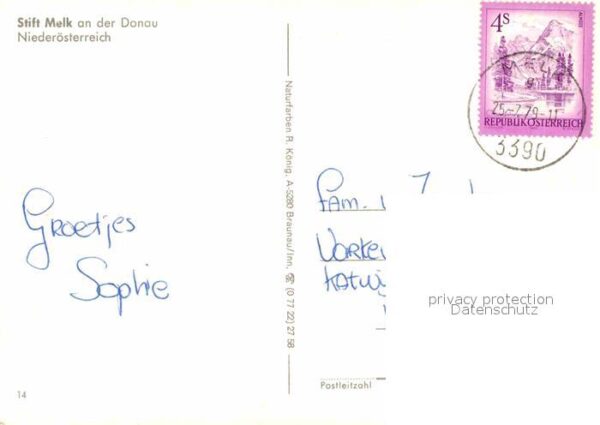 Stift Melk an der Donau
Niederösterreich
4s
ALMSEE
REPUBLIK ÖSTERREICH
25.-7.79-11
3390
Naturfarben R. König, A-5280 Braunau/Inn, ☎ (0 77 22) 27 58
Groetjes
Sophie
Fam.
privacy protection
Datenschutz
Postleitzahl
14